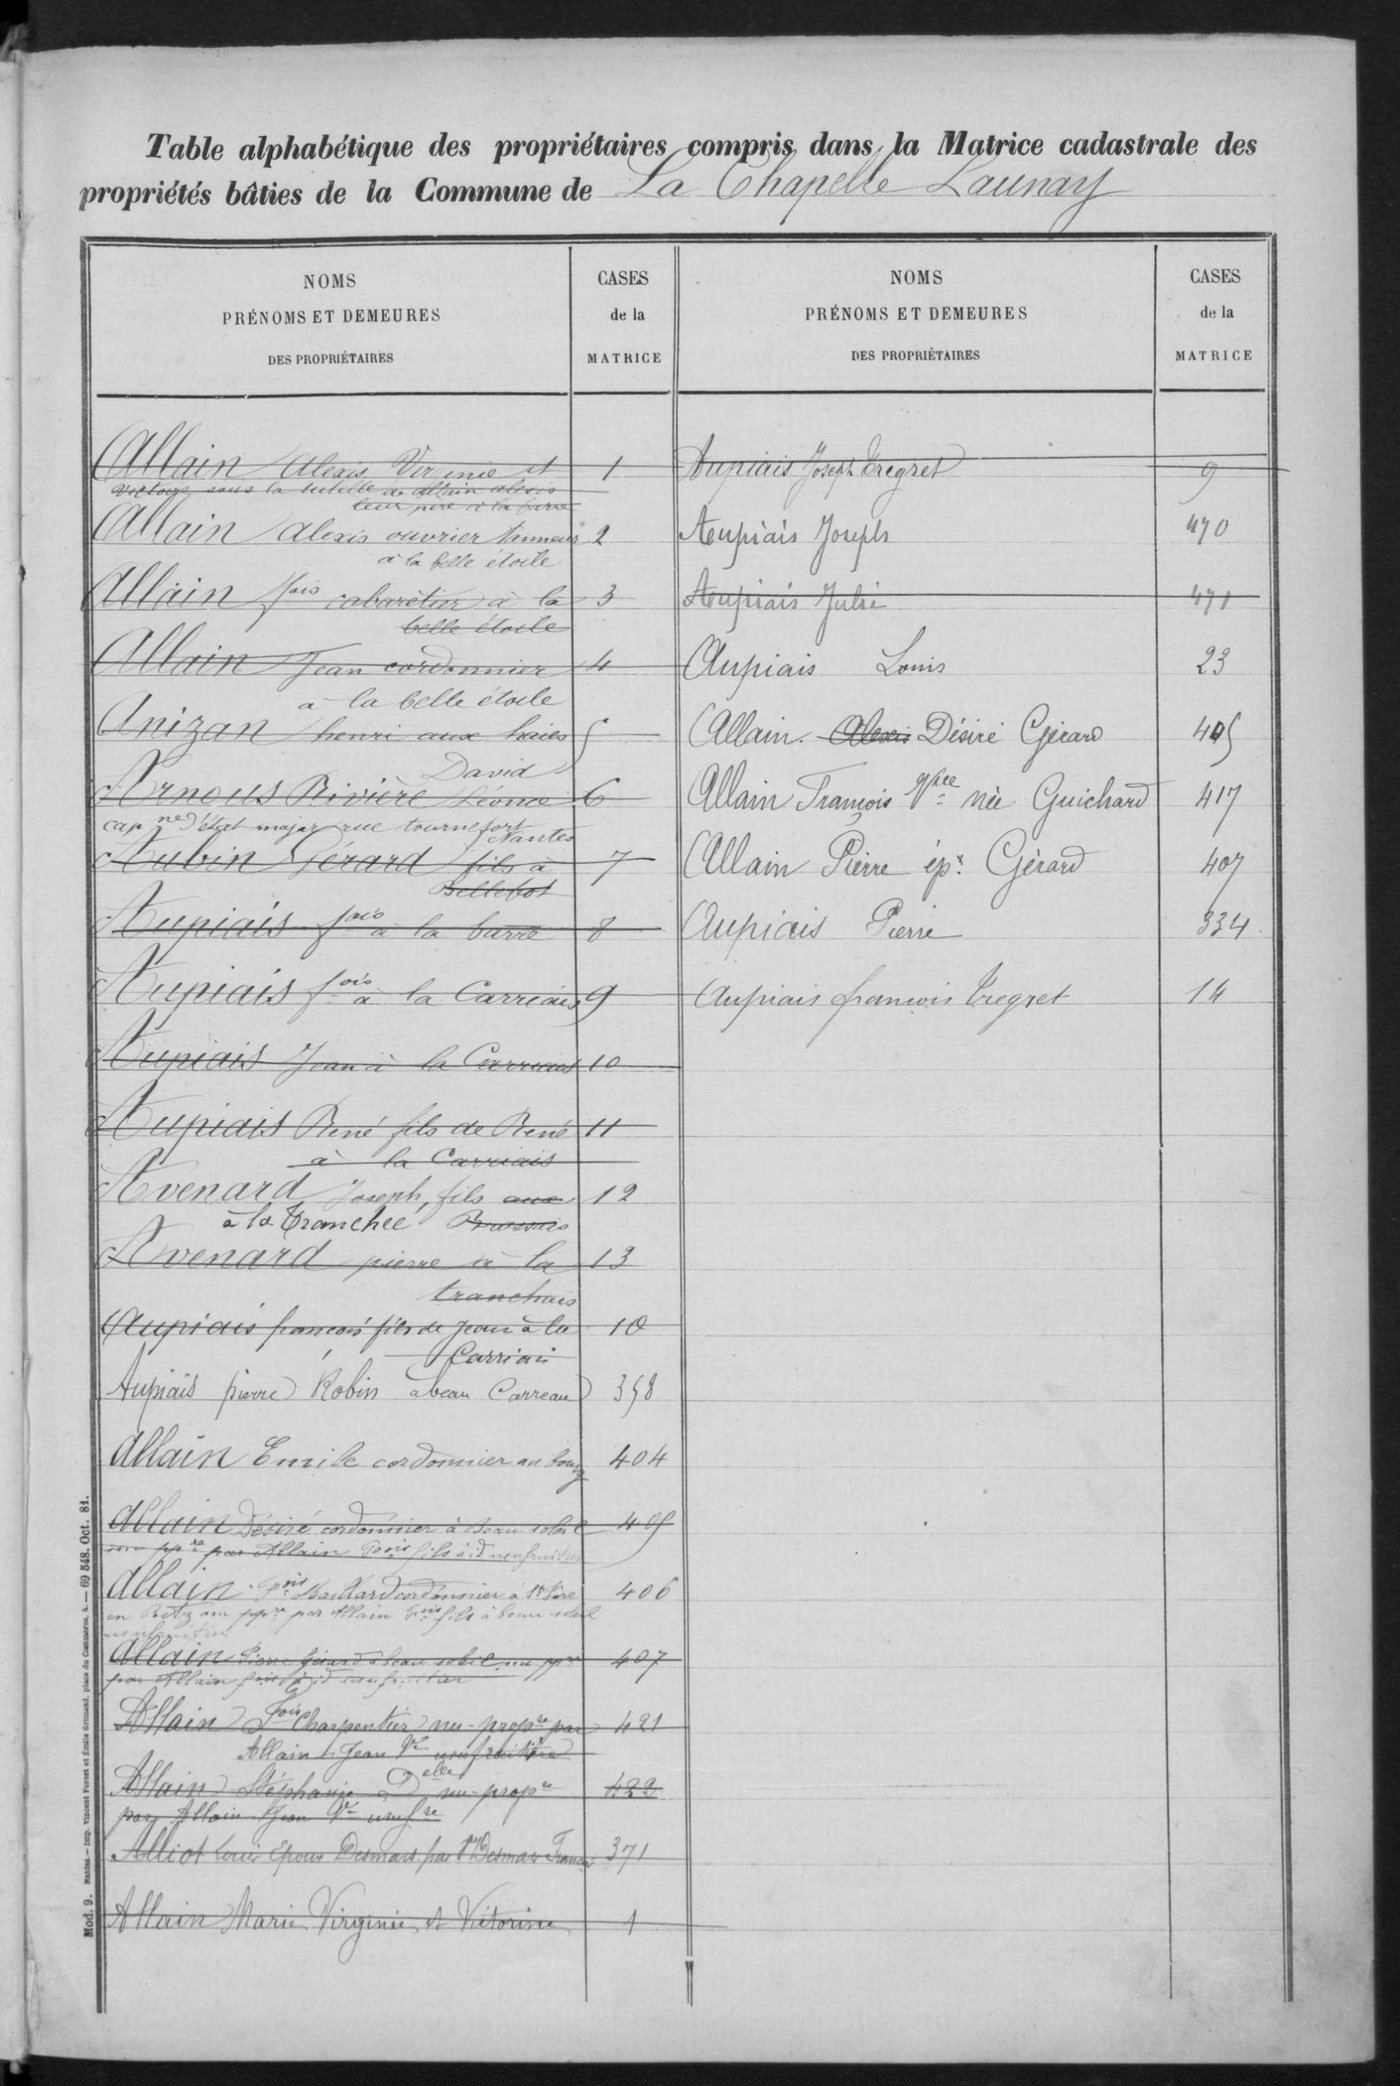 Table alphabétique des propriétaires compris dans la Matrice cadastrale des
propriétés bâties de la Commune de La Chapelle Launay
NOMS
PRÉNOMS ET DEMEURES
DES PROPRIÉTAIRES
CASES
de la
MATRICE
Allain Alexis Virginie et 1
Victoire sous la tutelle de Allain alexis
leur père à la barre
Allain Alexis ouvrier tanneur 2
à la belle étoile
Allain fois cabaretier à la 3
belle étoile
Allain Jean cordonnier 4
à la belle étoile
Anizan henri aux haies 5
David
Arnous Rivière Léonce 6
capne d'état major rue tournefort
Nantes
Aubin Gérard fils à 7
Bellebot
Aupiais fois à la barre 8
Aupiais fois à la Carriais 9
Aupiais Jean à la Carriais 10
Aupiais René fils de René 11
à la Carriais
Avenard Joseph, fils aux 12
à la Tranchée
Avenard pierre à la 13
tranchais
Aupiais francois fils de Jean à la 10
Carriais
Aupiais pierre Robin à beau Carreau 358
Allain Emile cordonnier au bourg 404
Allain Désiré cordonnier à beau soleil 405
nu ppre par Allain Fois fils à id usufruitier
Allain Fois Maillard cordonnier à St Père 406
en Retz nu ppre par Allain Fois fils à beau soleil
usufruitier
Allain Pierre Gérard à beau soleil nu ppre 407
par Allain fois à id usufruitier
Allain Fois Charpentier nu-propre par 421
Allain Jean Ve usufruitière
Allain Stéphanie Delle nu-propre 422
par Allain Jean Ve usufre
Alliot Louis Epoux Desmars par Desmars Francois 371
Allain Marie Virginie et Victorine 1
NOMS
PRÉNOMS ET DEMEURES
DES PROPRIÉTAIRES
CASES
de la
MATRICE
Aupiais Joseph Tregret 9
Aupiais Joseph 470
Aupiais Julie 471
Aupiais Louis 23
Allain Alexis Désiré Gérard 405
Allain François Vve née Guichard 417
Allain Pierre épx Gérard 407
Aupiais Pierre 334
Aupiais francois Tregret 14
Mod. 9. Nantes. — Imp. Vincent Forest et Émile Grimaud, place du Commerce, 4. — 60 548. Oct. 81.